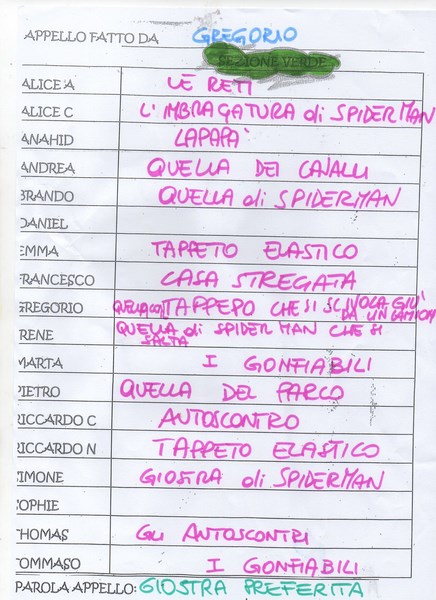 APPELLO FATTO DA GREGORIO
SEZIONE VERDE
ALICE A LE RETI
ALICE C L'IMBRAGATURA di SPIDERMAN
ANAHID LAPAPÀ
ANDREA QUELLA DEI CAVALLI
BRANDO QUELLA di SPIDERMAN
DANIEL
EMMA TAPPETO ELASTICO
FRANCESCO CASA STREGATA
GREGORIO TAPPEPO CHE SI SCIVOLA GIÙ
DA UN CAMION
IRENE QUELLA di SPIDERMAN CHE SI
SALTA
MARTA I GONFIABILI
PIETRO QUELLA DEL PARCO
RICCARDO C AUTOSCONTRO
RICCARDO N TAPPETO ELASTICO
SIMONE GIOSTRA di SPIDERMAN
SOPHIE
THOMAS GLI AUTOSCONTRI
TOMMASO I GONFIABILI
PAROLA APPELLO: GIOSTRA PREFERITA